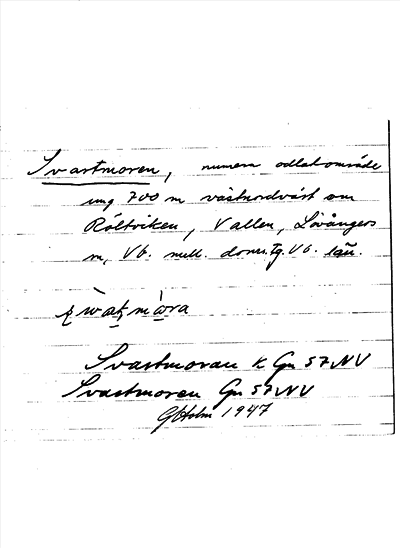 Svartmoren, numera odlat område
ung 700 m västnordväst om
Röltviken, Vallen, Lövångers
sn, Vb. mell. doms.tg. Vb. län.
Svartmoran k Gn 57 NV
Svartmoren Gn 57 NV
GHolm 1947